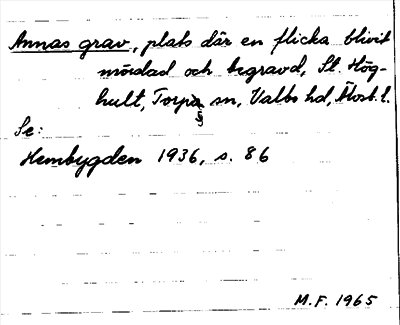 Annas grav, plats där en flicka blivit
mördad och begravd, St. Hög-
hult, Torpa sn, Valbo hd, Älvsb. l.
§
Se:
Hembygden 1936, s. 86
M.F. 1965